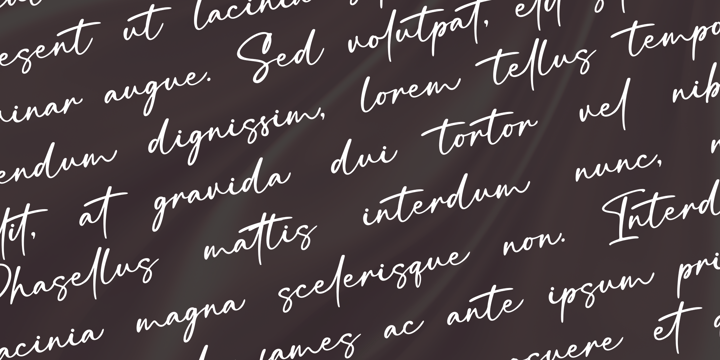 esent ut lacinia
inar augue. Sed volutpat, elit
endum dignissim, lorem tellus tempo
lit, at gravida dui tortor vel nib
Phasellus mattis interdum nunc,
acinia magna scelerisque non. Interd
ames ac ante ipsum pri
suere et